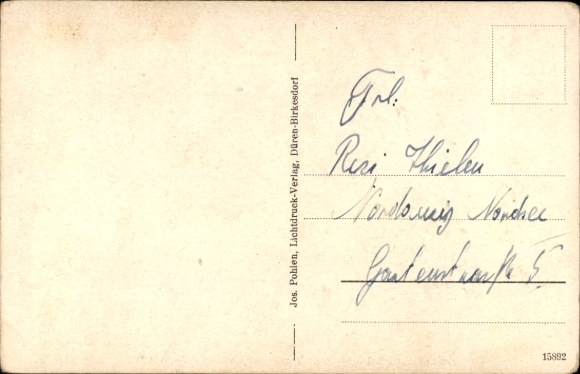 Jos. Pohlen, Lichtdruck-Verlag, Düren-Birkesdorf
Frl:
Resi Thielen
Nordsee
Gartenstraße 5
15892